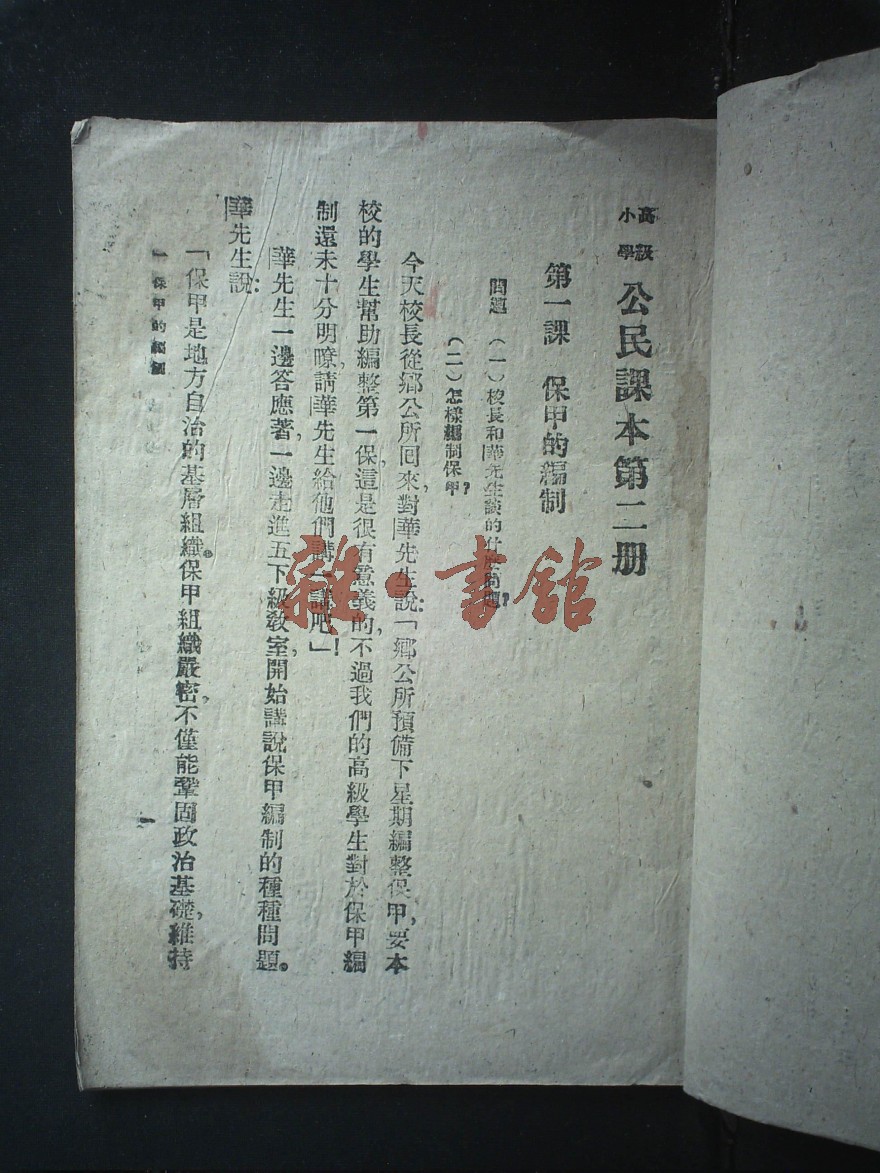 高級
小學
公民課本第二册
第一課　保甲的編制
問題　(一)校長和華先生談的什麼問題?
(二)怎樣編制保甲?
今天校長從鄉公所回來,對華先生說:「鄉公所預備下星期編整保甲,要本
校的學生幫助編整第一保,這是很有意義的,不過我們的高級學生對於保甲編
制還未十分明瞭,請華先生給他們講一講吧!」
華先生一邊答應著,一邊走進五下級教室,開始講說保甲編制的種種問題。
華先生說:
「保甲是地方自治的基層組織。保甲組織嚴密,不僅能鞏固政治基礎,維持
一　保甲的編制
一
雜·書館